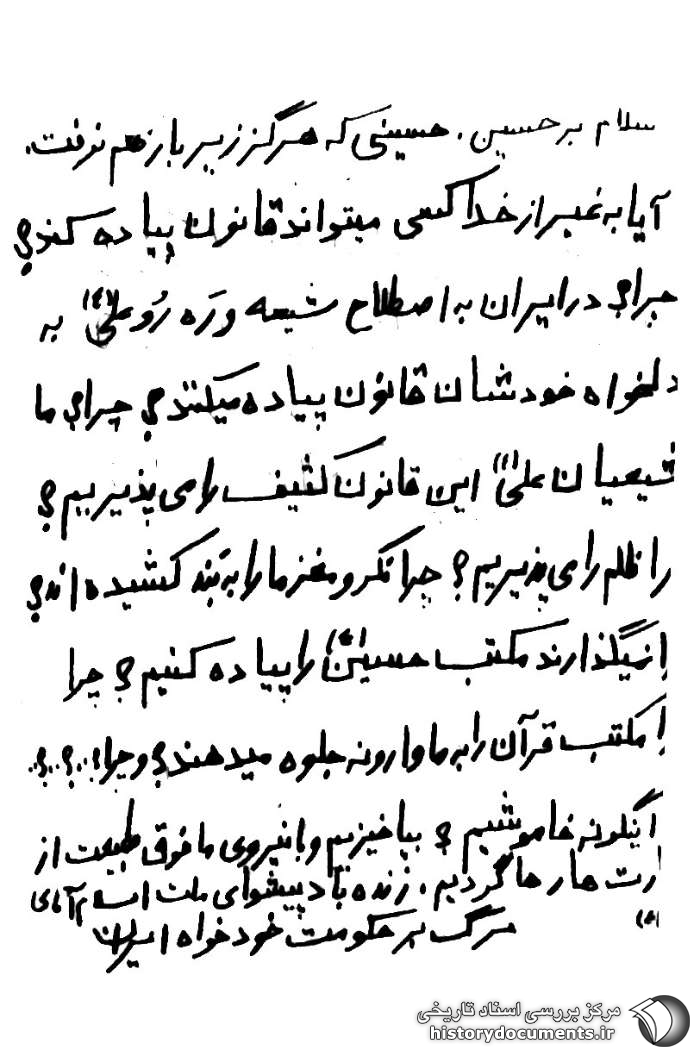 سلام بر حسین، حسینی که هرگز زیر بار زهم نرفت.
آیا به غیر از خدا کسی میتواند قانون پیاده کند؟
چرا؟ در ایران به اصطلاح شیعه و ره رُو علی (ع) به
دلخواه خودشان قانون پیاده میکنند؟ چرا؟ ما
شیعیان علی (ع) این قانون کثیف را می پذیریم؟
را ظلم را می پذیریم؟ چرا فکر و مغز ما را به بَند کشیده اند؟
ا نمیگذارند مکتب حسین (ع) را پیاده کنیم؟ چرا
ا مکتب قرآن را به ما وارونه جلوه میدهند؟ و چرا؟..؟..؟..
اینگونه خاموشیم؟ بپا خیزیم و با نیروی مافوق طبیعت از
ارت ها رها گردیم. زنده باد پیشوای ملت اسلام آقای
مرگ بر حکومت خودخواه ایران
مرکز بررسی اسناد تاریخی
historydocuments.ir